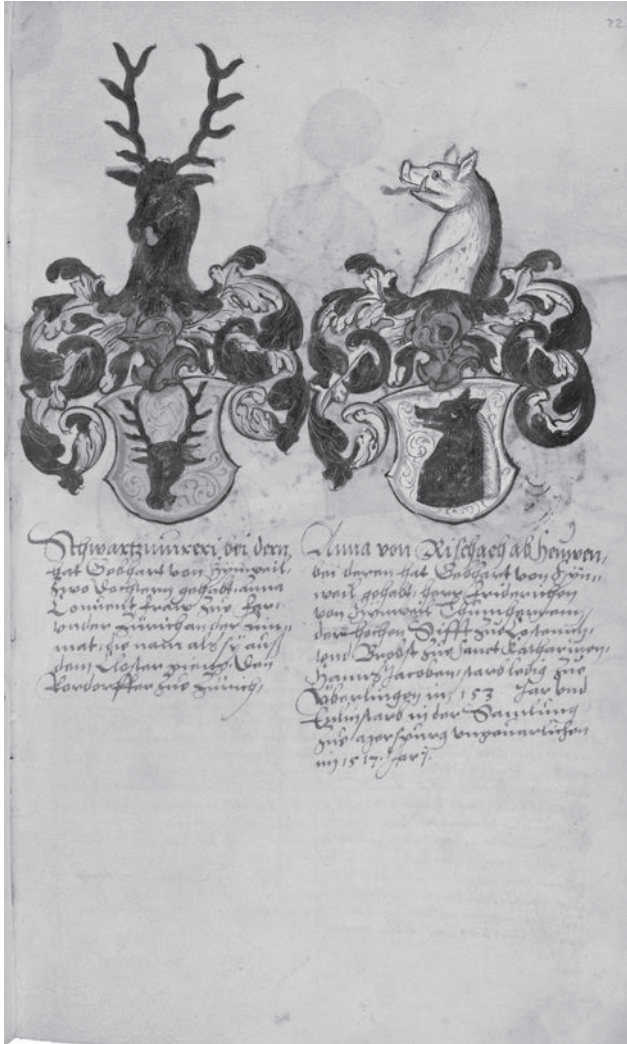 22
Schwartzmureri, bei dern,
hat Gebhart von Hynweil,
zwo Dochtern gehabt, anna
Convent fraw zue Far,
vnder Zürich an der Lim-
mat, die nam als sy aus
dem Closter gieng, Den
Rordorffer zue Zürich,
Anna von Rischach ab Heuwen,
bei deren hat Gebhart von Hyn-
weil gehabt, herr Friderichen
von Hynweil Thumherren
der hochen Stifft zue Costentz,
vnd Bropst zue Sanct Katharinen,
Hanns Jacoben, starb ledig zue
Überlingen im 153 Jar vnd
starb in der Samlung
zue vngeuarlichen
im 1517. Jar.